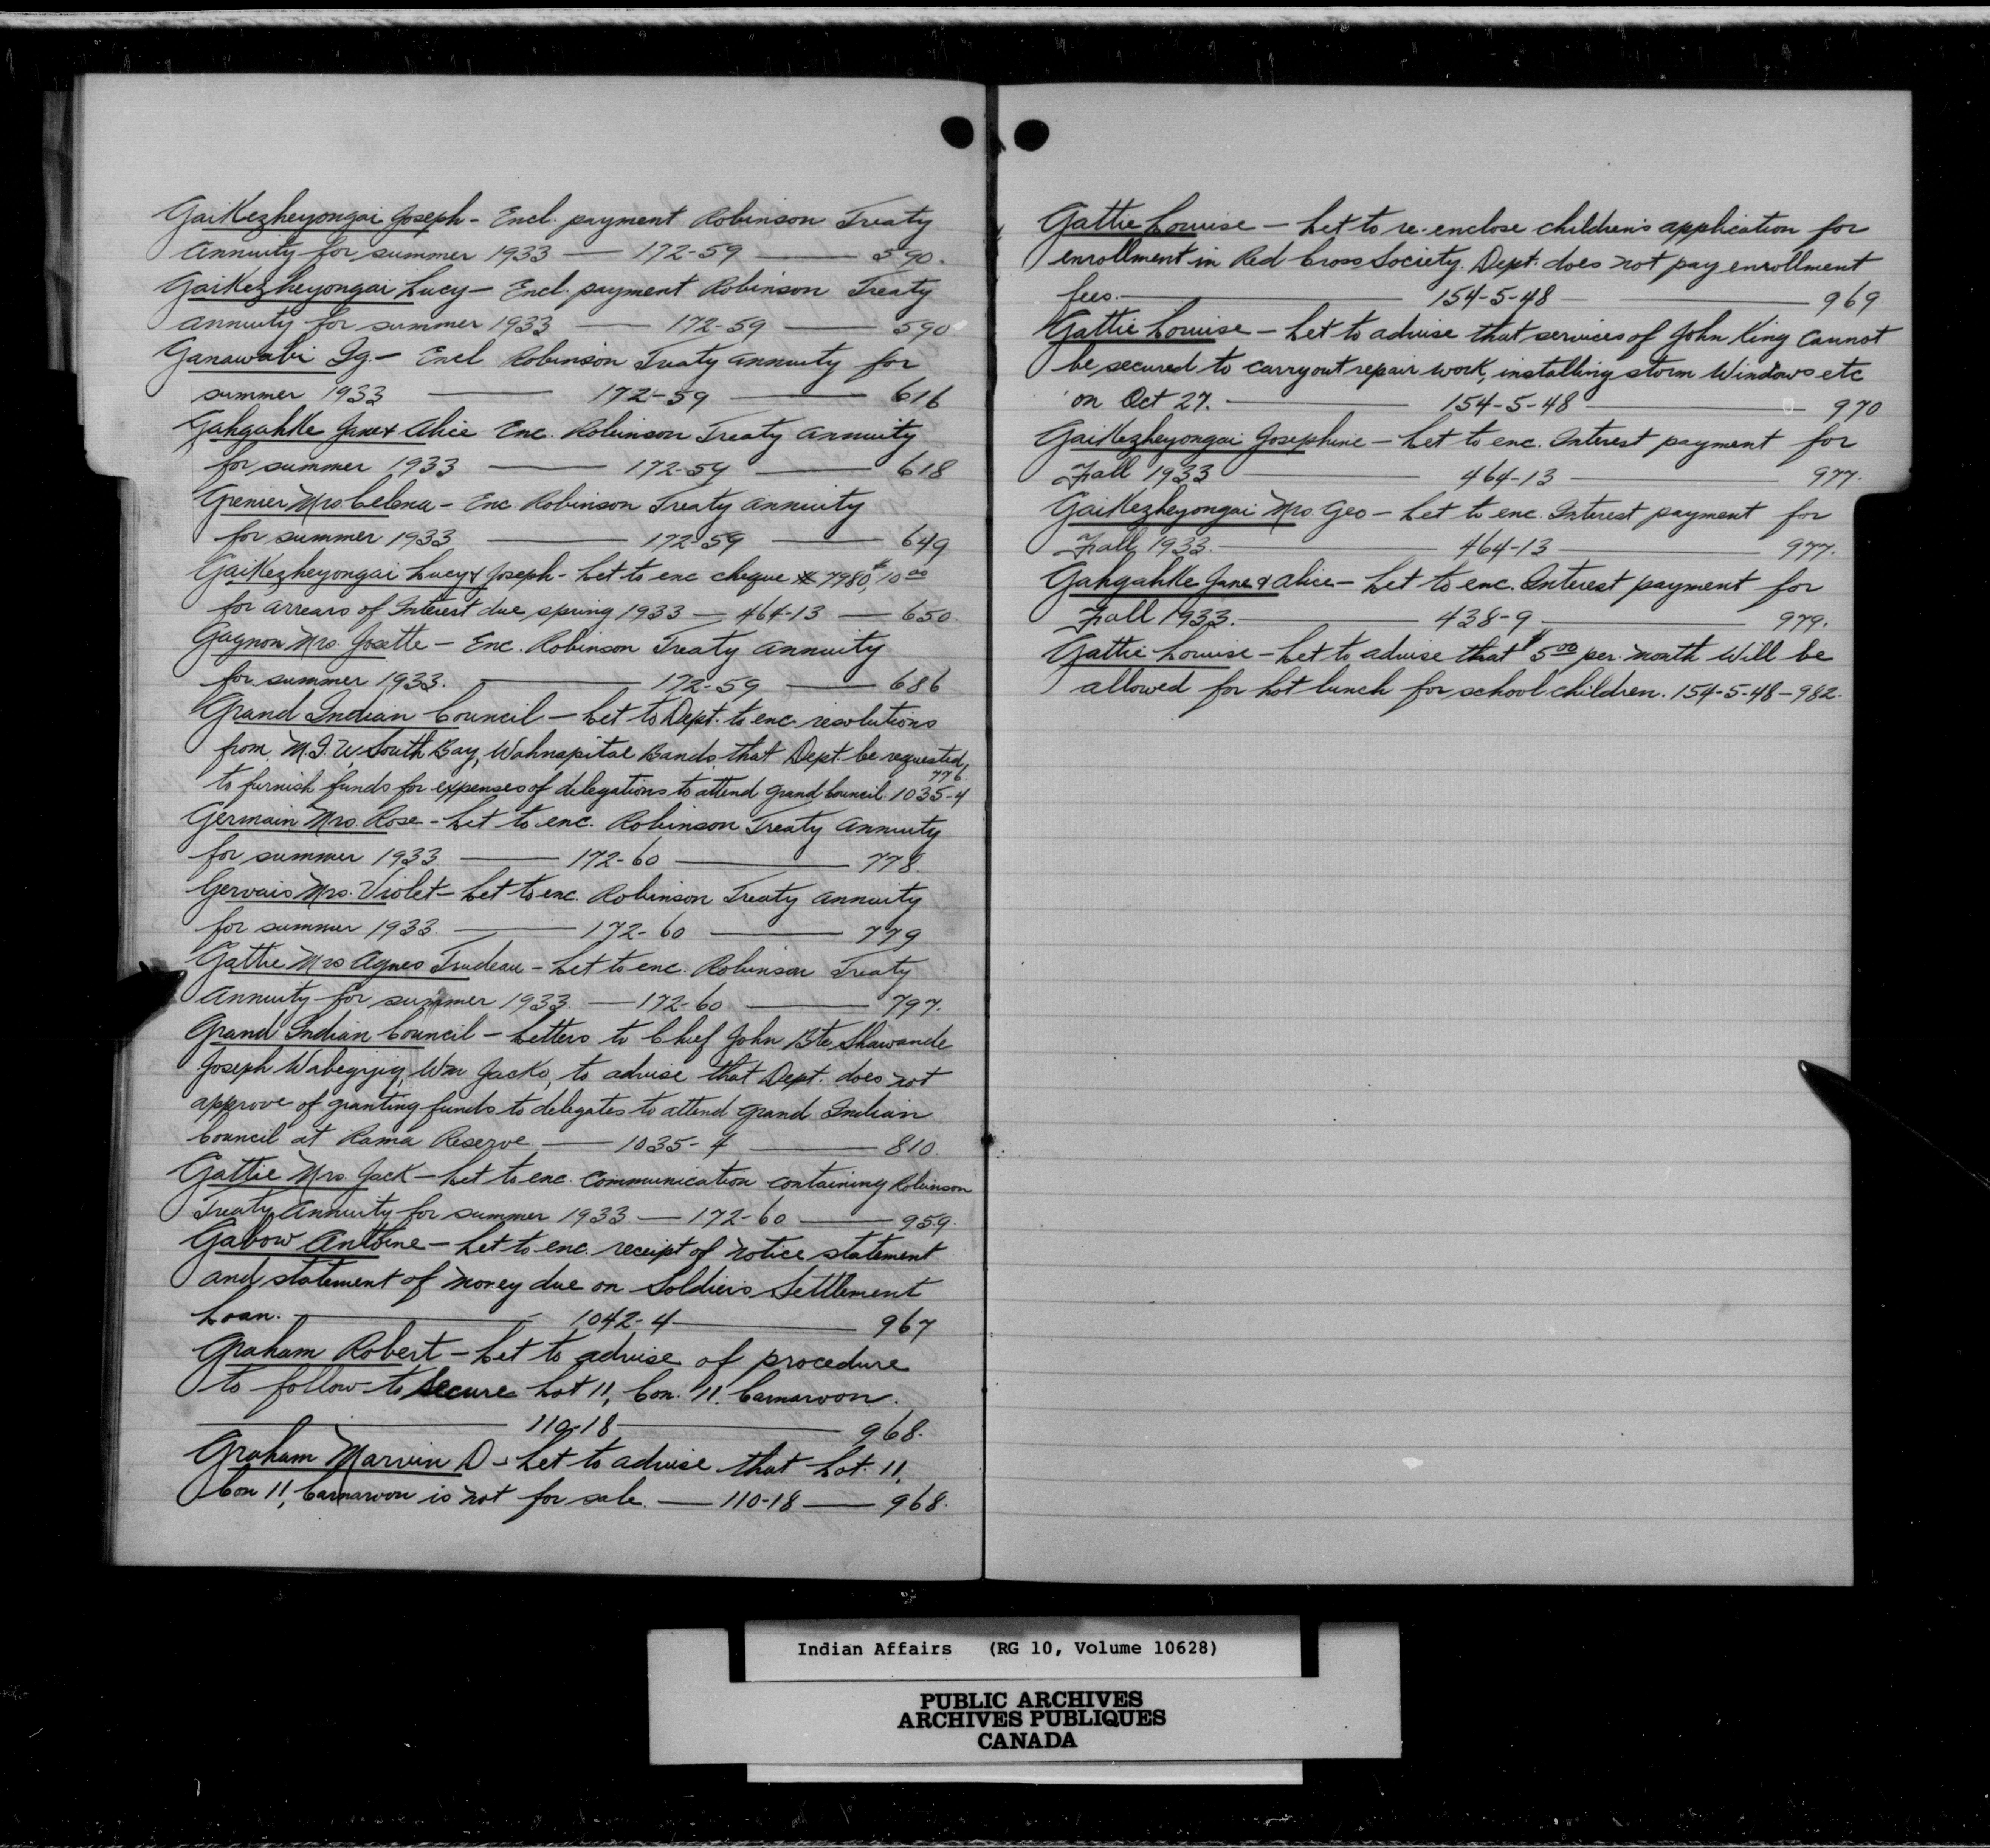 Gaikezheyongai Joseph - Encl. payment Robinson Treaty
Annuity for summer 1933 — 172-59 — 590.
Gaikezheyongai Lucy - Encl. payment Robinson Treaty
annuity for summer 1933 — 172-59 — 590
Ganawabi Ig. - Encl Robinson Treaty annuity for
summer 1933 — 172-59 — 616
Gahgahke Jane & Alice Enc. Robinson Treaty annuity
for summer 1933 — 172-59 — 618
Grenier Mrs. Celena - Enc. Robinson Treaty annuity
for summer 1933 — 172-59 — 649
Gaikezheyongai Lucy & Joseph - Let to enc cheque # 7980, $10 00
for arrears of Interest due, spring 1933 — 464-13 — 650.
Gagnon Mrs. Josette - Enc. Robinson Treaty annuity
for summer 1933. — 172-59 — 686
Grand Indian Council - Let to Dept. to enc. resolutions
from M.I.U, South Bay, Wahnapitae Bands, that Dept. be requested,
to furnish funds for expenses of delegations to attend grand Council. 1035-4 776.
Germain Mrs. Rose - Let to enc. Robinson Treaty annuity
for summer 1933 — 172-60 — 778.
Gervais Mrs. Violet - Let to enc. Robinson Treaty annuity
for summer 1933. — 172-60 — 779
Gattie Mrs Agnes Trudeau - Let to enc. Robinson Treaty
Annuity for summer 1933. — 172-60 — 797.
Grand Indian Council - Letters to Chief John Bte Shawande
Joseph Wabegijig, Wm Jacko, to advise that Dept. does not
approve of granting funds to delegates to attend grand Indian
Council at Rama Reserve — 1035-4 — 810.
Gattie Mrs. Jack - Let to enc. communication containing Robinson
Treaty Annuity for summer 1933 — 172-60 — 959.
Gabow Antoine - Let to enc. receipt of notice statement
and statement of money due on Soldiers Settlement
Loan. — 1042-4 — 967
Graham Robert - Let to advise of procedure
to follow to secure Lot 11, Con. 11. Carnarvon.
— 110-18 — 968.
Graham Marvin D - Let to advise that Lot. 11,
Con 11, Carnarvon is not for sale. — 110-18 — 968.
Gattie Louise - Let to re-enclose children's application for
enrollment in Red Cross Society. Dept. does not pay enrollment
fees. — 154-5-48 — 969.
Gattie Louise - Let to advise that services of John King cannot
be secured to carry out repair work, installing storm windows etc
on Oct 27. — 154-5-48 — 970
Gaikezheyongai Josephine - Let to enc. Interest payment for
Fall 1933 — 464-13 — 977.
Gaikezheyongai Mrs. Geo - Let to enc. Interest payment for
Fall 1933. — 464-13 — 977.
Gahgahke Jane & Alice - Let to enc. Interest payment for
Fall 1933. — 438-9 — 979.
Gattie Louise - Let to advise that $5 00 per month will be
allowed for hot lunch for school children. 154-5-48 - 982.
Indian Affairs (RG 10, Volume 10628)
PUBLIC ARCHIVES
ARCHIVES PUBLIQUES
CANADA